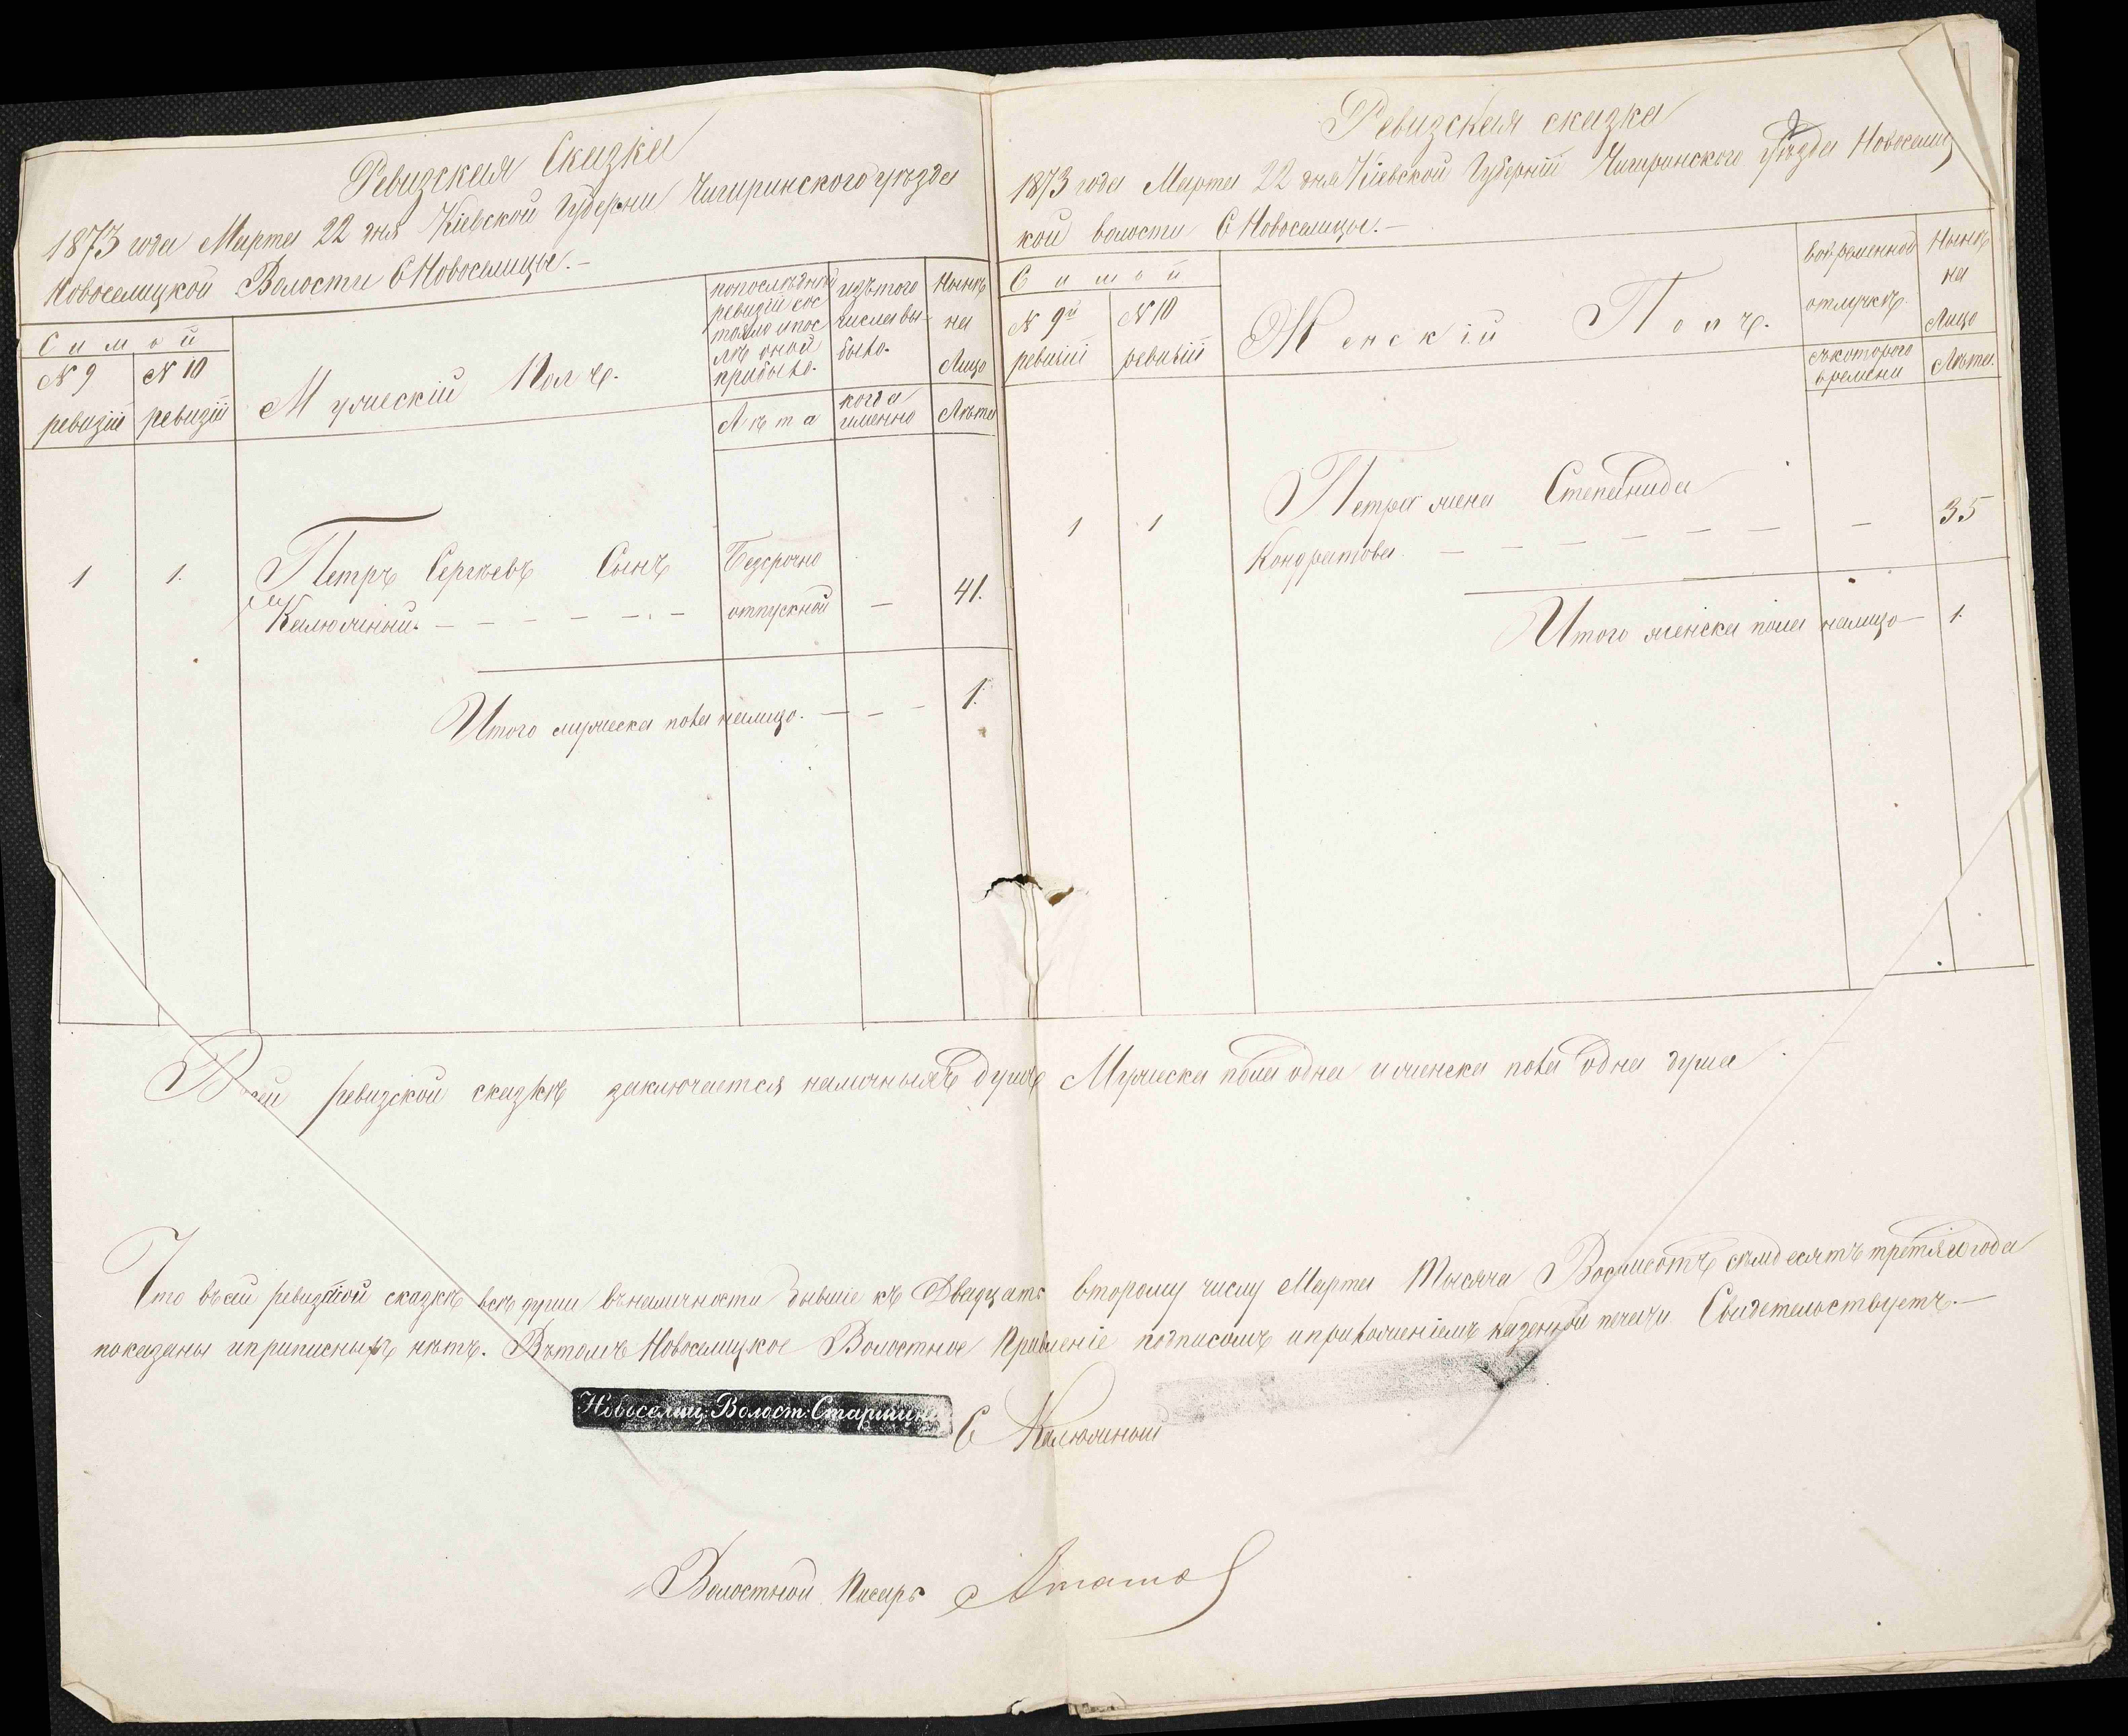 Ревизская Сказка
1873 года Марта 22 дня Кіевской Губерни Чигиринского уѣзда
Новоселицкой Волости С Новоселицы.-
С и м о й
№ 9
ревизіи
№ 10
ревизіи
Мужескій Полъ.
попослѣдней
ревизіи сос
тояло ипос
лѣ оной
прибыло.
Лѣта
изътого
числа вы-
было.
когда
именно
Нынѣ
на
Лицо
Лѣта
1 1. Петръ Сергѣевъ Сынъ Безсрочно
Калюжный. - - - - - - отпускной - 41.
Итого мужеска пола налицо. - - - 1.
Ревизская сказка
1873 года Марта 22 дня Кіевской Губерніи Чигиринского уѣзда Новоселиц
кой волости С Новоселицы.-
С и м о й
№ 9й
ревизіи
№ 10
ревизіи
Женскій Полъ.
вовременной
отлучкѣ.
съкоторого
времени
Нынѣ
на
Лицо
Лѣта.
1 1 Петра жена Степанида
Кондратова. - - - - - - - 35
Итого женска пола налицо - 1.
Всей ревизской сказкѣ заключается наличныхъ душъ Мужеска пола одна иженска пола одна душа
Что въсей ревизской сказкѣ всѣ души вналичности бывшіе къ Двадцать второму числу Марта Тысяча Восмисотъ сѣмдесятъ третяго года
показаны иприписныхъ нѣтъ. Вътомъ Новоселицкое Волостное Правленіе подписомъ иприложеніемъ казенной печати Свидетельствуетъ.-
Новоселиц: Волост: Старшина С Калюжный
Волостной Писарь